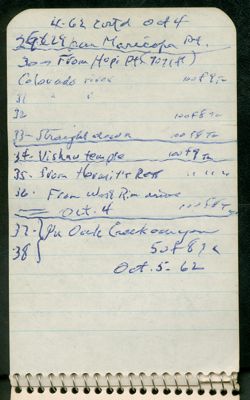 4-62 contd Oct 4
from Maricopa Pt.
30 → From Hopi Pt.
Colorado river 100 f 9
31 " "
32 100 f 8
33 - Straight down 100 f 8
34 - Vishnu temple 100 f 9
35 - From Hermit's Rest " " "
36 - From West Rim drive
Oct. 4 100 f 8
37 - In Oak Creek canyon
38 50 f 8
Oct. 5 - 62